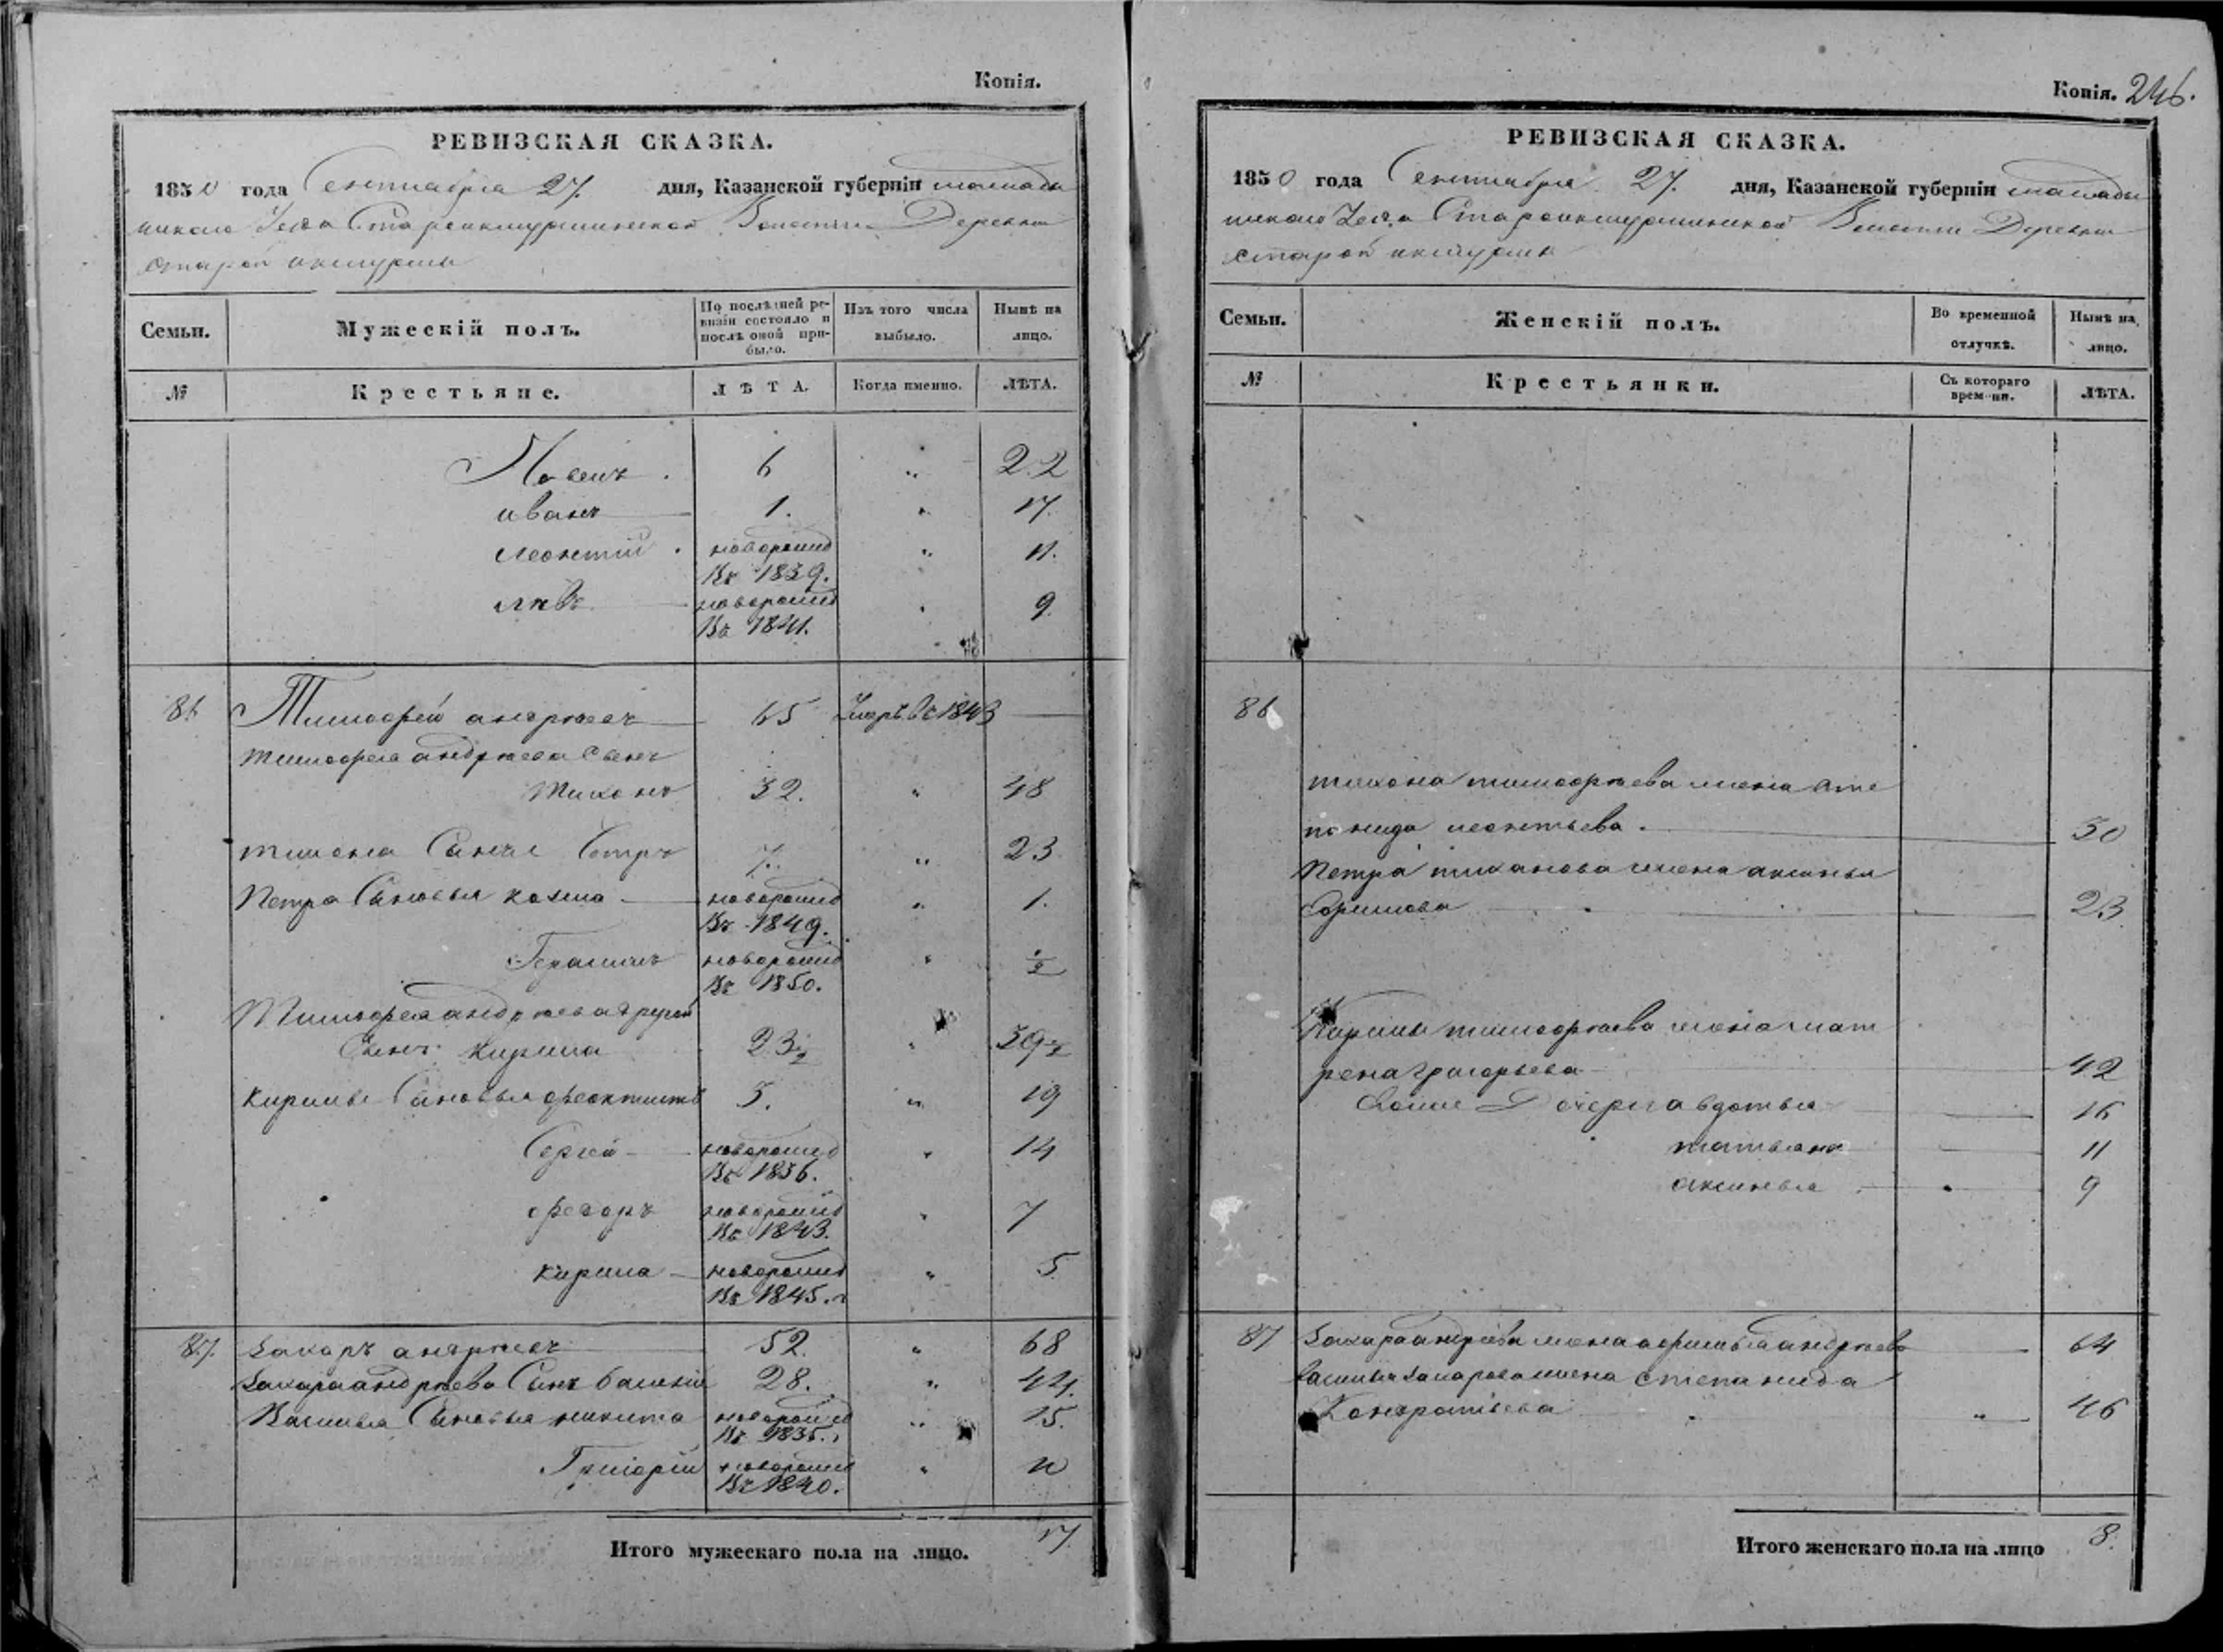 Копія.
РЕВИЗСКАЯ СКАЗКА.
1850 года Сентября 27. дня, Казанской губерніи мамады
шскаго Уезда Староикшурминской Волости Деревни
старой икшурмы
Семьи. Мужескій полъ. По послѣдней ре- Изъ того числа Нынѣ на
визіи состояло и
послѣ оной при- выбыло. лицо.
было.
№ Крестьяне. ЛѢТА. Когда именно. ЛѢТА.
6 „ 22
иванъ 1. „ 17.
леонтій новорожд „ 11.
Въ 1839.
новорожд „ 9.
Въ 1841.
86 Тимофей андреевъ 65 Умръ въ 1843
тимофея андреева Сынъ
тихонъ 32. „ 48
тихона Сынъ Петръ 7. „ 23
Петра Сыновья козма новорожд „ 1.
Въ 1849.
Герасимъ новорожд „ ½
Въ 1850.
Тимофея андреева другой
Сынъ кирила 23½ „ 39½
кирилы Сыновья феоктистъ 3. „ 19
Сергей новорожд „ 14
Въ 1836.
федоръ новорожд „ 7
Въ 1843.
кирила новорожд „ 5.
Въ 1845.
87. Захаръ андреевъ 52. „ 68
Захара андреева Сынъ Василій 28. „ 44.
Василья Сыновья никита новорожд „ 15.
Въ 1835.
Григорій новорожд „ 10
Въ 1840.
Итого мужескаго пола на лицо. 17.
Копія. 246.
РЕВИЗСКАЯ СКАЗКА.
1850 года Сентября 27. дня, Казанской губерніи мамады
шскаго Уезда Староикшурминской Волости Деревни
старой икшурмы
Семьи. Женскій полъ. Во временной Нынѣ на
отлучкѣ. лицо.
№ Крестьянки. Съ котораго ЛѢТА.
врем-ни.
86
тихона тимофеева жена сте
понида леонтьева. 50
Петра тиханова жена аксинья
Ефимова 23.
Кирилы тимофеева жена мат
рена Григорьева 42
Ихние Дочери авдотья 16
татьяна 11
аксинья 9
87 Захара андреева жена афимья андреева 64
Василья Захарова жена степанида
Кондратьева „ 46
Итого женскаго пола на лицо 8.